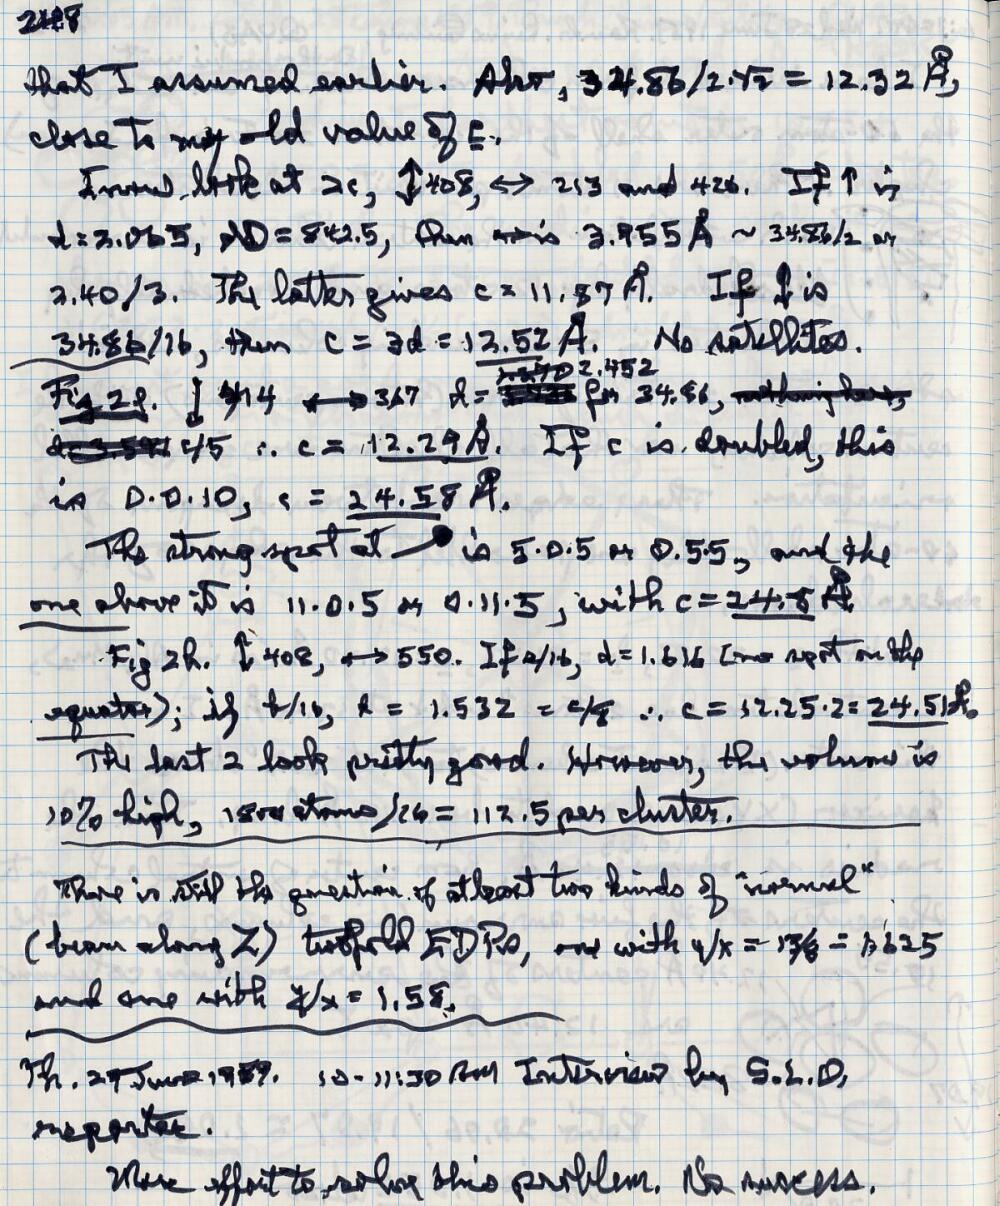 that I assumed earlier. Also, 34.86/2·√2 = 12.32 Å,
close to my old value of c.
I now look at 2c, ↕408, ↔ 213 and 426. If ↑ is
d=2.065, dD=842.5, then ↔ is 3.955Å ~ 34.86/2 or
2.40/3. The latter gives c = 11.87 Å. If ↕ is
34.86/16, then c = 3d = 12.52 Å. No satellites.
Fig 2f. ↓ 414 ↔ 367 d= 2.452 for 34.86,
c/5 ∴ c = 12.29 Å. If c is doubled, this
is 0·0·10, c = 24.58 Å.
The strong spot at is 5·0·5 or 0.55, and the
one above it is 11·0·5 or 0·11·5, with c = 24.5 Å.
Fig 2h. ↕ 408, ↔ 550. If a/16, d=1.616 (no spot on the
equator); if b/16, d = 1.532 = c/8 ∴ c = 12.25·2 = 24.51Å.
The last 2 look pretty good. However, the volume is
10% high, 1800 atoms/16 = 112.5 per cluster.
There is still the question of at least two kinds of "normal"
(beam along Z) twofold EDPs, one with y/x = 13/8 = 1.625
and one with y/x = 1.58.
Th. 29 June 1989. 10-11:30 AM Interview by S.L.O.
reporter.
More effort to solve this problem. No success.